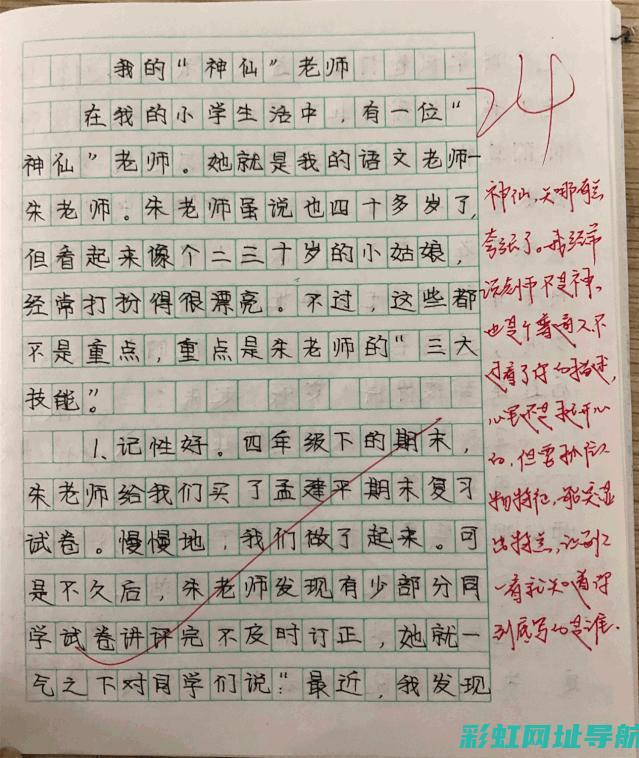 我的“神仙”老师
在我的小学生活中，有一位“
神仙”老师。她就是我的语文老师—
朱老师。朱老师虽说也四十多岁了，
但看起来像个二三十岁的小姑娘，
经常打扮得很漂亮。不过，这些都
不是重点，重点是朱老师的“三大
技能”。
1、记性好。四年级下的期末，
朱老师给我们买了孟建平期末复习
试卷。慢慢地，我们做了起来。可
是不久后，朱老师发现有少部分同
学试卷讲评完不及时订正，她就一
气之下对同学们说：“最近，我发现
24
神仙，
夸张了。我经常
说老师不是神，
也是个普通人不
过看了你的描述，
心里还是挺开心
的，但要抓住人
物特征，
出特点，让别人
一看就知道你
到底写的是谁.
彩虹网址导航